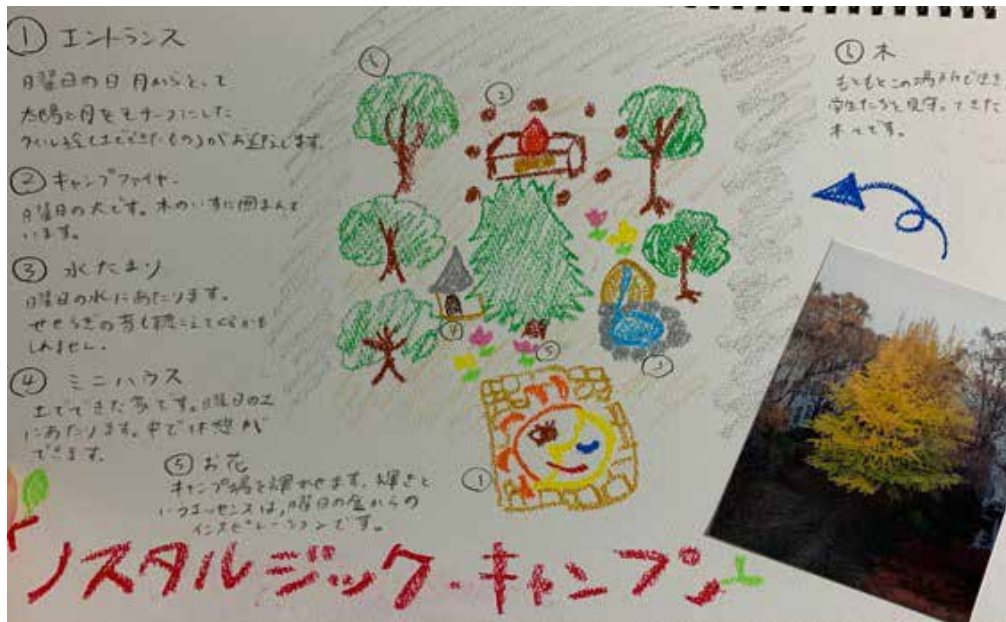 ① エントランス
日曜日の日 月からとって
太陽と月をモチーフにした
タイル絵(土でできたもの)がお迎えします。
② キャンプファイヤー
月曜日の火です。木のいすに囲まれて
います。
③ 水たまり
曜日の水にあたります。
せせらぎの音も聴こえてくるかも
しれません。
④ ミニハウス
土でできた家です。曜日の土
にあたります。中で休憩が
できます。
⑤ お花
キャンプ場を輝かせます。輝きと
いうエッセンスは、曜日の金からの
インスピレーションです。
⑥ 木
もともとこの場所で生き
学生たちを見守ってきた
木々です。
⑥
②
④
⑤
③
①
ノスタルジック・キャンプ